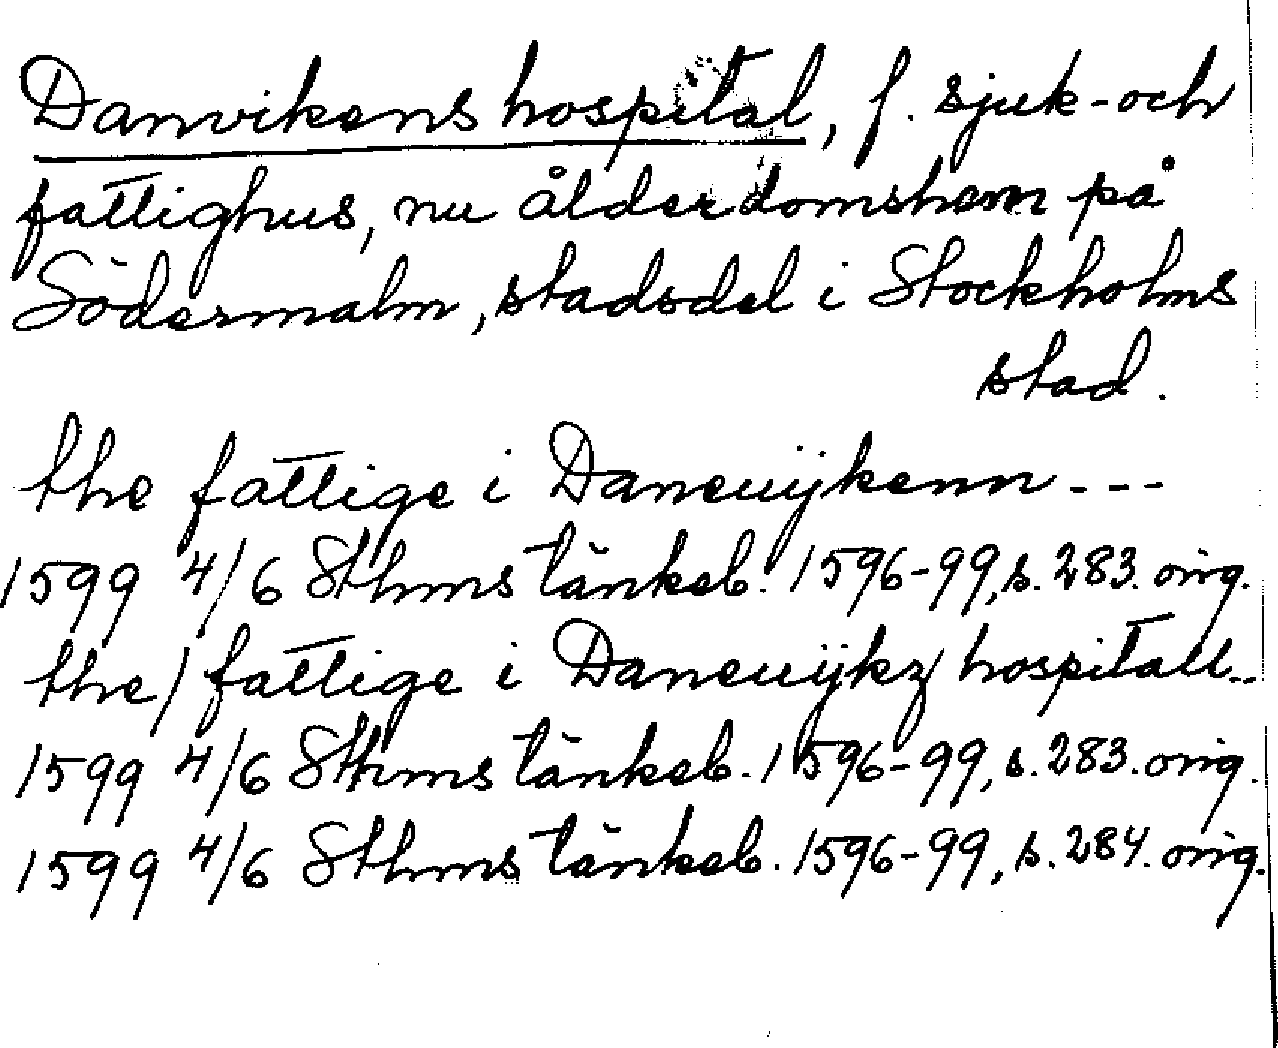 Danvikens hospital, f. sjuk- och
fattighus, nu ålderdomshem på
Södermalm, stadsdel i Stockholms
stad.
the fattige i Daneuijkenn ---
1599 4/6 Sthms tänkeb. 1596-99, s. 283. orig.
the / fattige i Daneuijkz / hospitall..
1599 4/6 Sthms tänkeb. 1596-99, s. 283. orig.
1599 4/6 Sthms tänkeb. 1596-99, s. 284. orig.